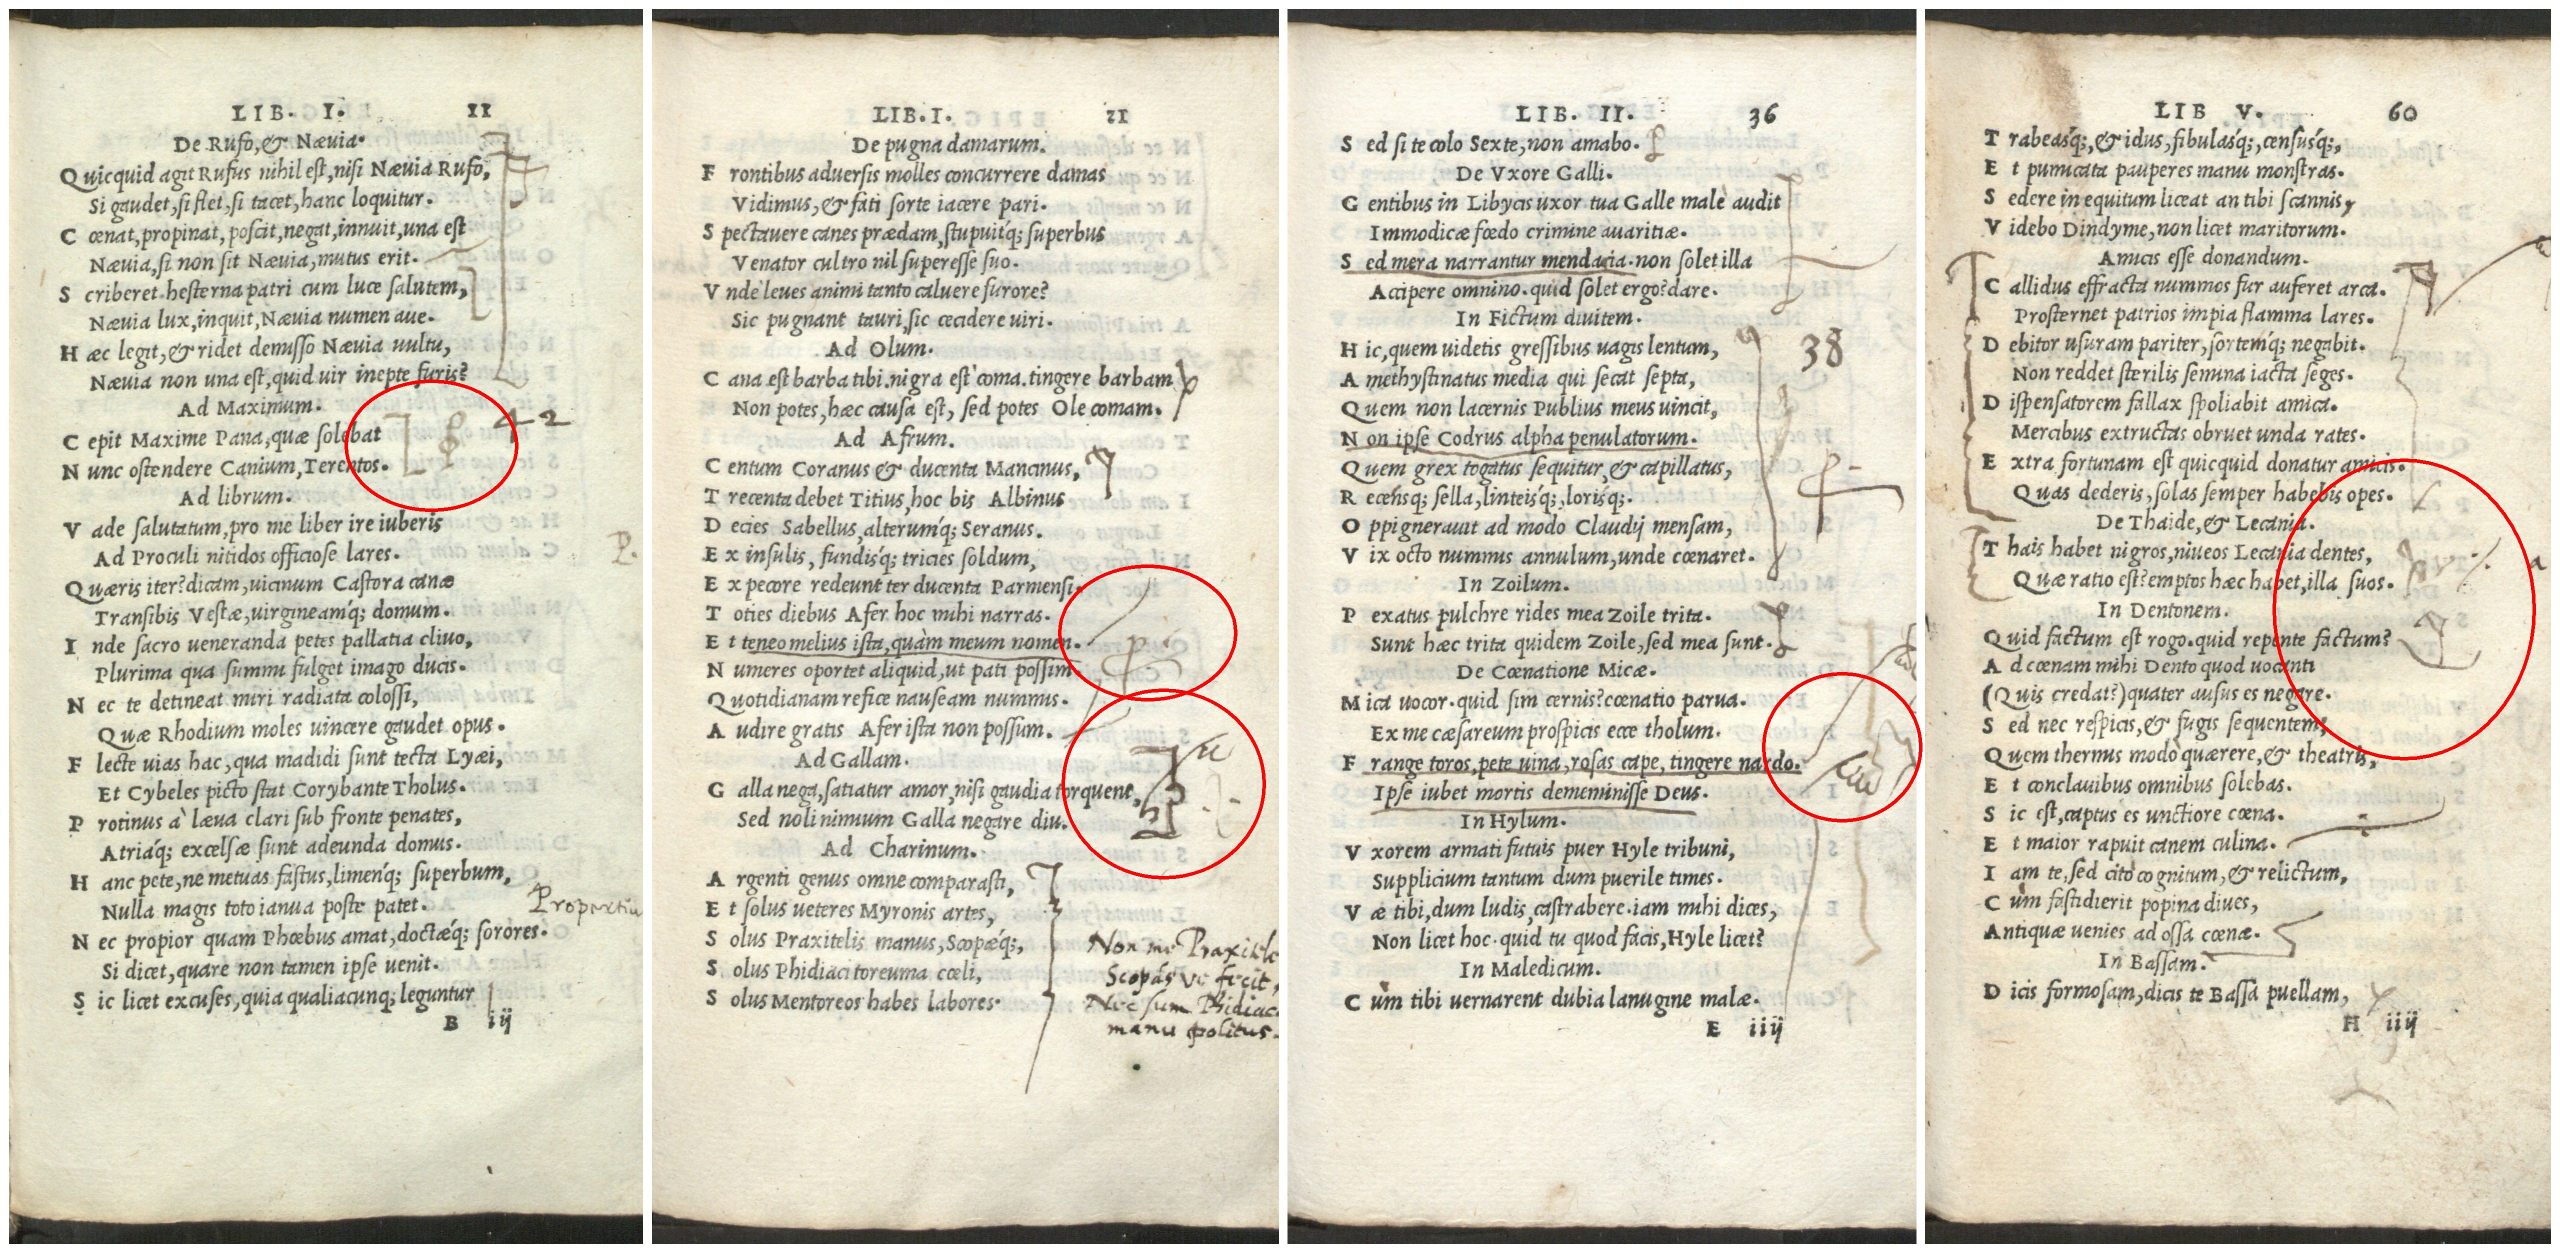 LIB. I. 11
De Rufo, & Næuia.
Quicquid agit Rufus nihil est, nisi Næuia Rufo,
Si gaudet, si flet, si tacet, hanc loquitur.
C œnat, propinat, poscit, negat, innuit, una est
Næuia, si non sit Næuia, mutus erit.
S criberet hesterna patri cum luce salutem,
Næuia lux, inquit, Næuia numen aue.
H æc legit, & ridet demisso Næuia uultu,
Næuia non una est, quid uir inepte furis?
Ad Maximum.
C epit Maxime Pana, quæ solebat
42
N unc ostendere Canium, Terentos.
Ad librum.
V ade salutatum, pro me liber ire iuberis
Ad Proculi nitidos officiose lares.
P.
Quæris iter? dicam, uicinum Castora canæ
Transibis Vestæ, uirgineamq́; domum.
I nde sacro ueneranda petes pallatia cliuo,
Plurima qua summi fulget imago ducis.
N ec te detineat miri radiata colossi,
Quæ Rhodium moles uincere gaudet opus.
F lecte uias hac, qua madidi sunt tecta Lyæi,
Et Cybeles picto stat Corybante Tholus.
P rotinus à læua clari sub fronte penates,
Atriaq́; excelsæ sunt adeunda domus.
H anc pete, ne metuas fastus, limenq́; superbum,
Nulla magis toto ianua poste patet.
N ec propior quam Phœbus amat, doctæq́; sorores.
Si dicet, quare non tamen ipse uenit.
S ic licet excuses, quia qualiacunq; leguntur
B iij
LIB. I. 21
De pugna damarum.
F rontibus aduersis molles concurrere damas
Vidimus, & fati sorte iacere pari.
S pectauere canes prædam, stupuitq́; superbus
Venator cultro nil superesse suo.
V nde leues animi tanto caluere furore?
Sic pugnant tauri, sic cecidere uiri.
Ad Olum.
C ana est barba tibi. nigra est coma. tingere barbam
Non potes, hæc causa est, sed potes Ole comam.
Ad Afrum.
C entum Coranus & ducenta Mancinus,
T recenta debet Titius, hoc bis Albinus
D ecies Sabellus, alterumq́; Seranus.
E x insulis, fundisq́; tricies soldum,
E x pecore redeunt ter ducenta Parmensi.
T oties diebus Afer hoc mihi narras.
E t teneo melius ista, quàm meum nomen.
N umeres oportet aliquid, ut pati possim
Quotidianam refice nauseam nummis.
A udire gratis Afer ista non possum.
Ad Gallam.
G alla nega, satiatur amor, nisi gaudia torquent,
Sed noli nimium Galla negare diu.
Ad Charinum.
A rgenti genus omne comparasti,
E t solus ueteres Myronis artes,
S olus Praxitelis manus, Scopæq́;,
S olus Phidiaci toreuma cœli,
S olus Mentoreos habes labores.
Non me Praxitele
Scopas ve fecit,
Nec sum Phidiac
manu politus.
LIB. II. 36
S ed si te colo Sexte, non amabo.
De Vxore Galli.
G entibus in Libycis uxor tua Galle malè audit
Immodicæ fœdo crimine auaritiæ.
S ed mera narrantur mendacia. non solet illa
Accipere omnino. quid solet ergo? dare.
In Fictum diuitem.
H ic, quem uidetis gressibus uagis lentum,
38
A methystinatus media qui secat septa,
Quem non lacernis Publius meus uincit,
N on ipse Codrus alpha penulatorum.
Quem grex togatus sequitur, & capillatus,
R ecensq; sella, linteisq́;, lorisq́;.
O ppignerauit ad modò Claudij mensam,
V ix octo nummis annulum, unde cœnaret.
In Zoilum.
P exatus pulchre rides mea Zoile trita.
Sunt hæc trita quidem Zoile, sed mea sunt.
De Cœnatione Micæ.
Mica uocor. quid sim cernis? cœnatio parua.
Ex me cæsareum prospicis ecce tholum.
F range toros, pete uina, rosas cape, tingere nardo.
Ipse iubet mortis dememinisse Deus.
In Hylum.
V xorem armati futuis puer Hyle tribuni,
Supplicium tantum dum puerile times.
V æ tibi, dum ludis, castrabere. iam mihi dices,
Non licet hoc. quid tu quod facis, Hyle licet?
In Maledicum.
C ùm tibi uernarent dubia lanugine malæ.
E iiij
LIB V. 60
T rabeasq́;, & idus, fibulasq́;, censusq́;,
E t pumicata pauperes manu monstras.
S edere in equitum liceat an tibi scannis,
V idebo Dindyme, non licet maritorum.
Amicis esse donandum.
C allidus effracta nummos fur auferet arca.
Prosternet patrios impia flamma lares.
D ebitor usuram pariter, sortemq́; negabit.
Non reddet sterilis semina iacta seges.
D ispensatorem fallax spoliabit amica.
Mercibus extructas obruet unda rates.
E xtra fortunam est quicquid donatur amicis.
Quas dederis, solas semper habebis opes.
De Thaide, & Lecania.
T hais habet nigros, niueos Lecania dentes,
Quæ ratio est? emptos hæc habet, illa suos.
In Dentonem.
Quid factum est rogo. quid repente factum?
A d cœnam mihi Dento quod uocanti
(Quis credat?) quater ausus es negare.
S ed nec respicis, & fugis sequentem,
Quem thermis modò quærere, & theatris,
E t conclauibus omnibus solebas.
S ic est, captus es unctiore cœna.
E t maior rapuit canem culina.
I am te, sed cito cognitum, & relictum,
C ùm fastidierit popina diues,
Antiquæ uenies ad ossa cœnæ.
In Bassam.
D icis formosam, dicis te Bassa puellam,
H iiij